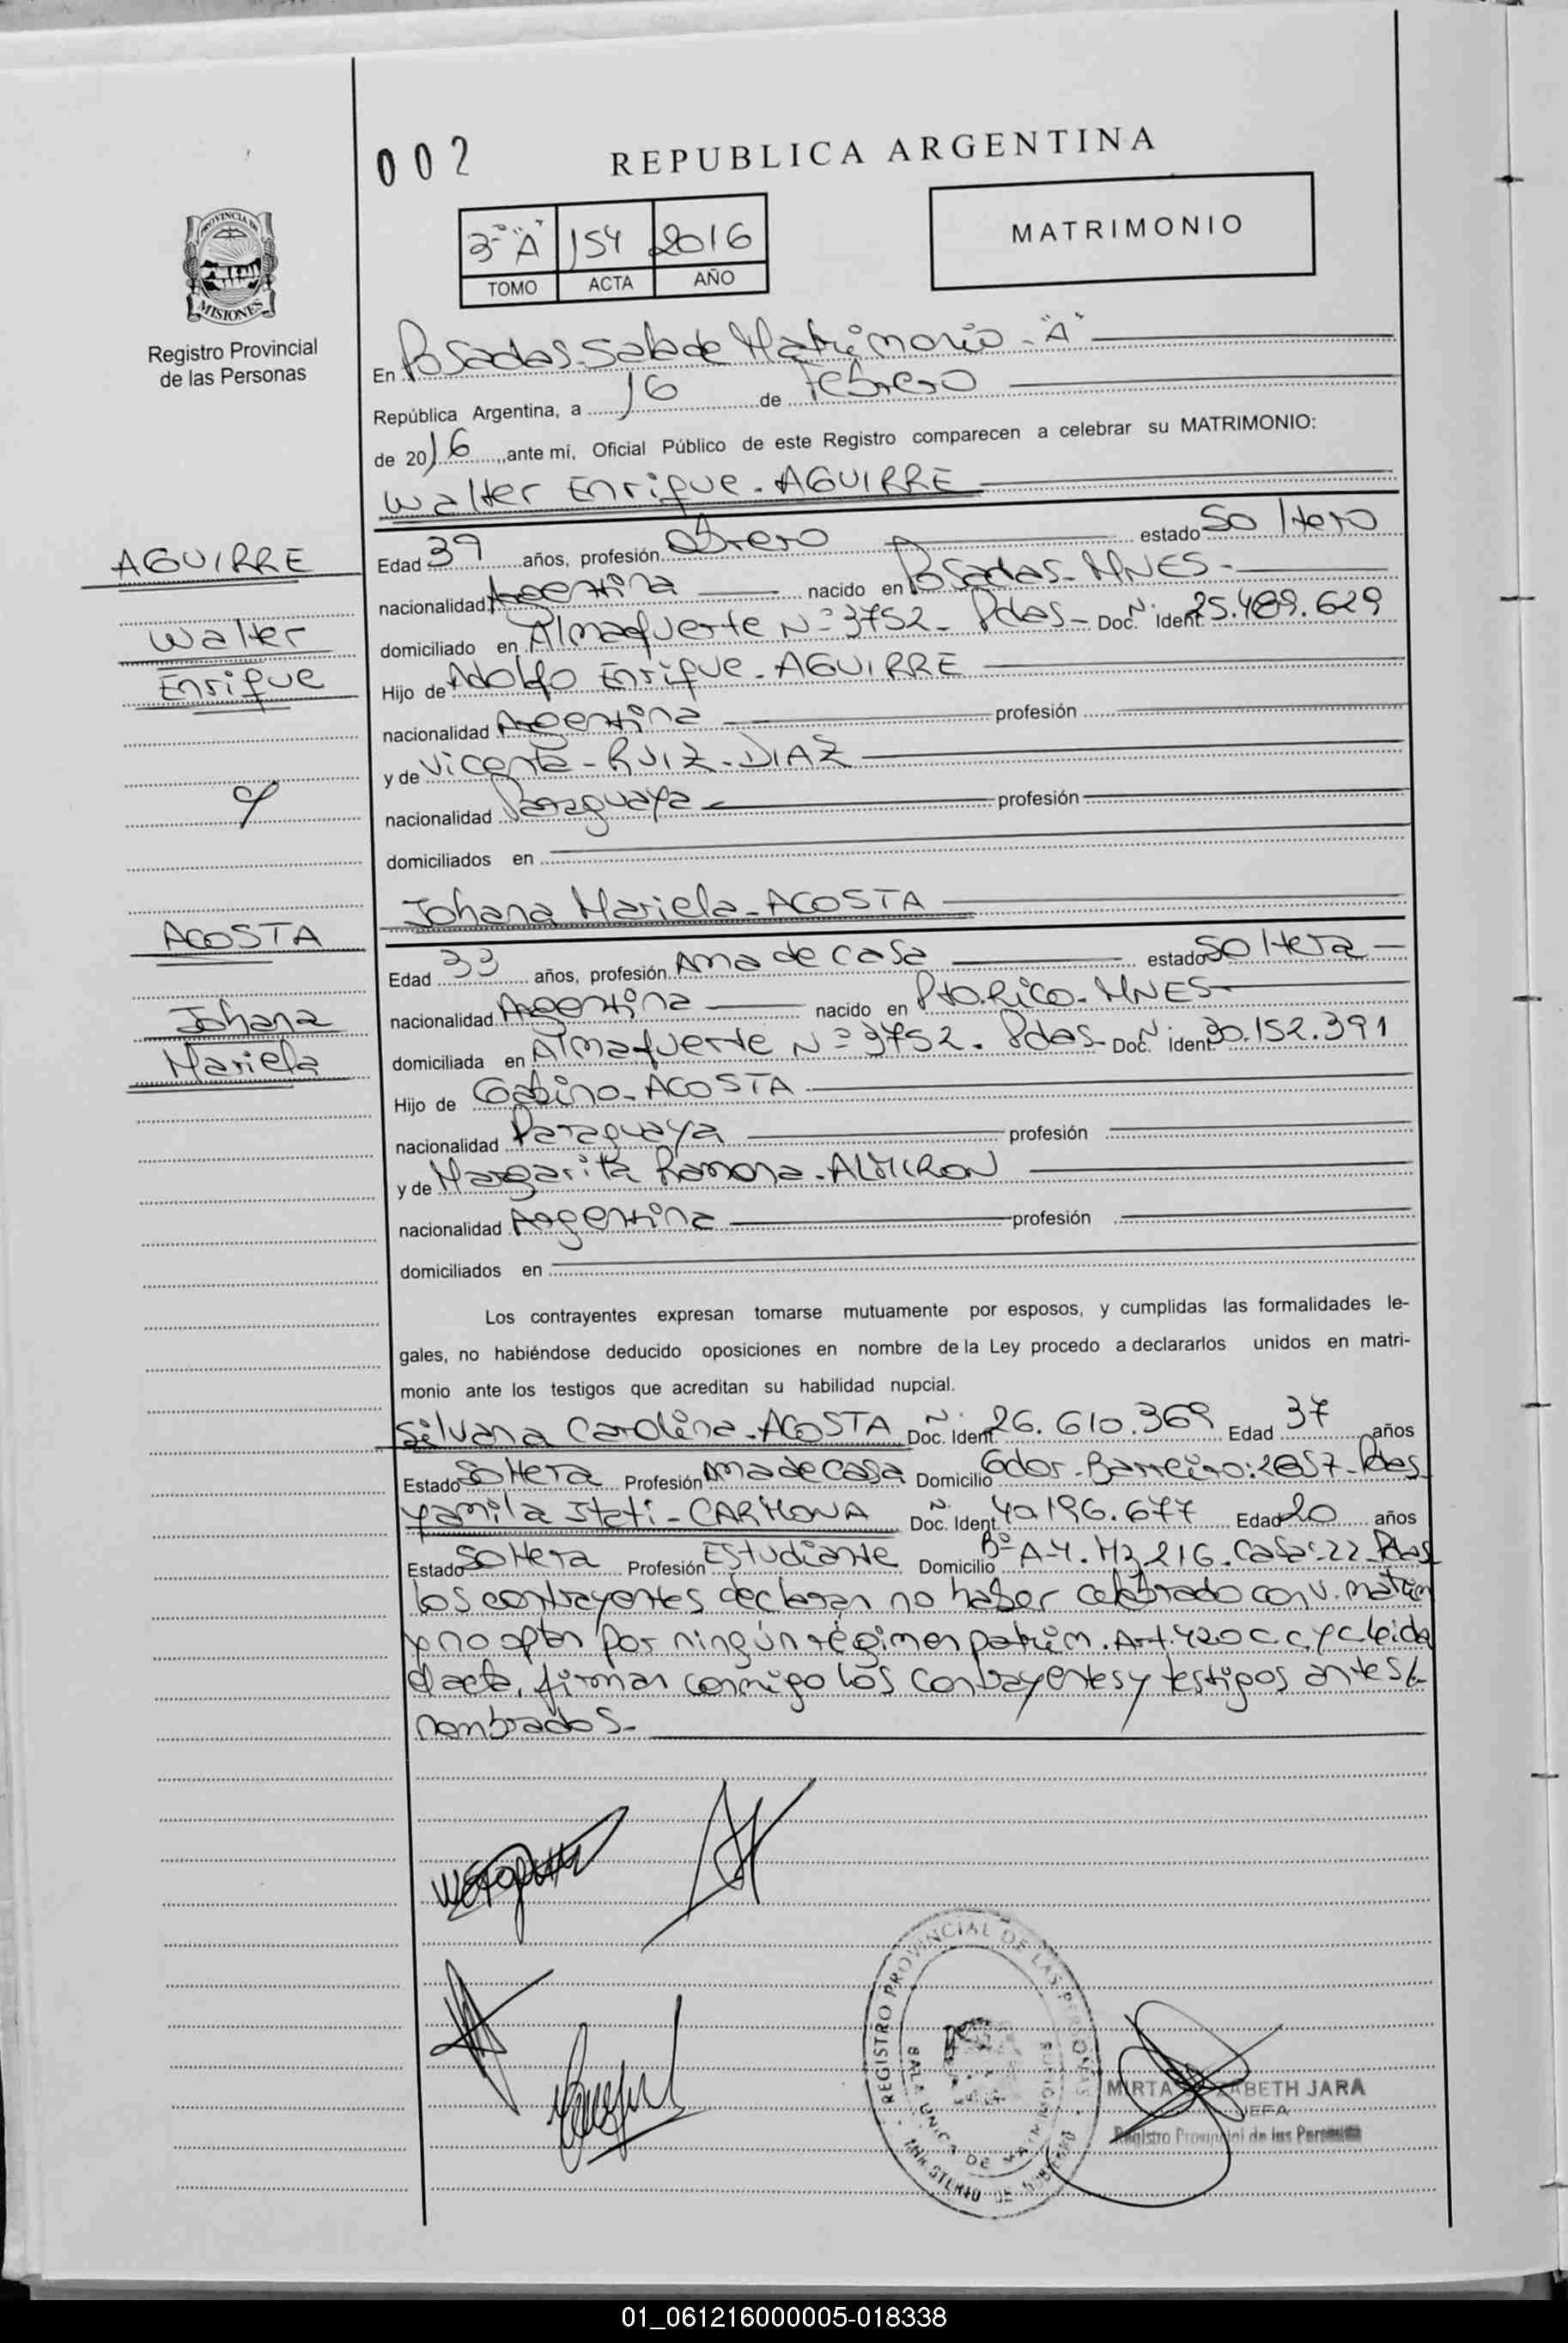 002
REPUBLICA ARGENTINA
3º "A" 154 2016
TOMO ACTA AÑO
MATRIMONIO
PROVINCIA DE
MISIONES
Registro Provincial
de las Personas
En Posadas-Sala de Matrimonio-"A"
República Argentina, a 16 de Febrero
de 2016, ante mí, Oficial Público de este Registro comparecen a celebrar su MATRIMONIO:
Walter Enrique-AGUIRRE
AGUIRRE
Walter
Enrique
Edad 39 años, profesión Obrero estado Soltero
nacionalidad Argentina nacido en Posadas-MNES-
domiciliado en Almafuerte Nº 3752- Pdas- Doc. Nº Ident. 25.489.629
Hijo de Adolfo Enrique-AGUIRRE
nacionalidad Argentina profesión
y de Vicenta-RUIZ-DIAZ
y
nacionalidad Paraguaya profesión
domiciliados en
Johana Mariela-ACOSTA
ACOSTA
Johana
Mariela
Edad 33 años, profesión Ama de casa estado Soltera-
nacionalidad Argentina nacido en Pto.Rico-MNES-
domiciliada en Almafuerte Nº 3752. Pdas- Doc. Nº Ident. 30.152.391
Hijo de Gabino-ACOSTA
nacionalidad Paraguaya profesión
y de Margarita Ramona-ALMIRON
nacionalidad Argentina profesión
domiciliados en
Los contrayentes expresan tomarse mutuamente por esposos, y cumplidas las formalidades le-
gales, no habiéndose deducido oposiciones en nombre de la Ley procedo a declararlos unidos en matri-
monio ante los testigos que acreditan su habilidad nupcial.
Silvana Carolina-ACOSTA Doc. Nº Ident. 26.610.369 Edad 37 años
Estado Soltera Profesión Ama de casa Domicilio Gdor-Barreiro:2857-Pdas
Yamila Itatí-CARMONA Doc. Nº Ident. 40.196.677 Edad 20 años
Estado Soltera Profesión Estudiante Domicilio Bº A-4. Mz 216. Casa:22 Pdas
Los contrayentes declaran no haber celebrado conv. matrim
y no optan por ningún régimen patrim. Art. 420 C.C.yC Leida
el acta, firman conmigo los contrayentes y testigos antes
nombrados-
REGISTRO PROVINCIAL DE LAS PERSONAS
SALA UNICA DE MATRIMONIOS
MINISTERIO DE GOBIERNO
MIRTA ELIZABETH JARA
JEFA
Registro Provincial de las Personas
01_061216000005-018338